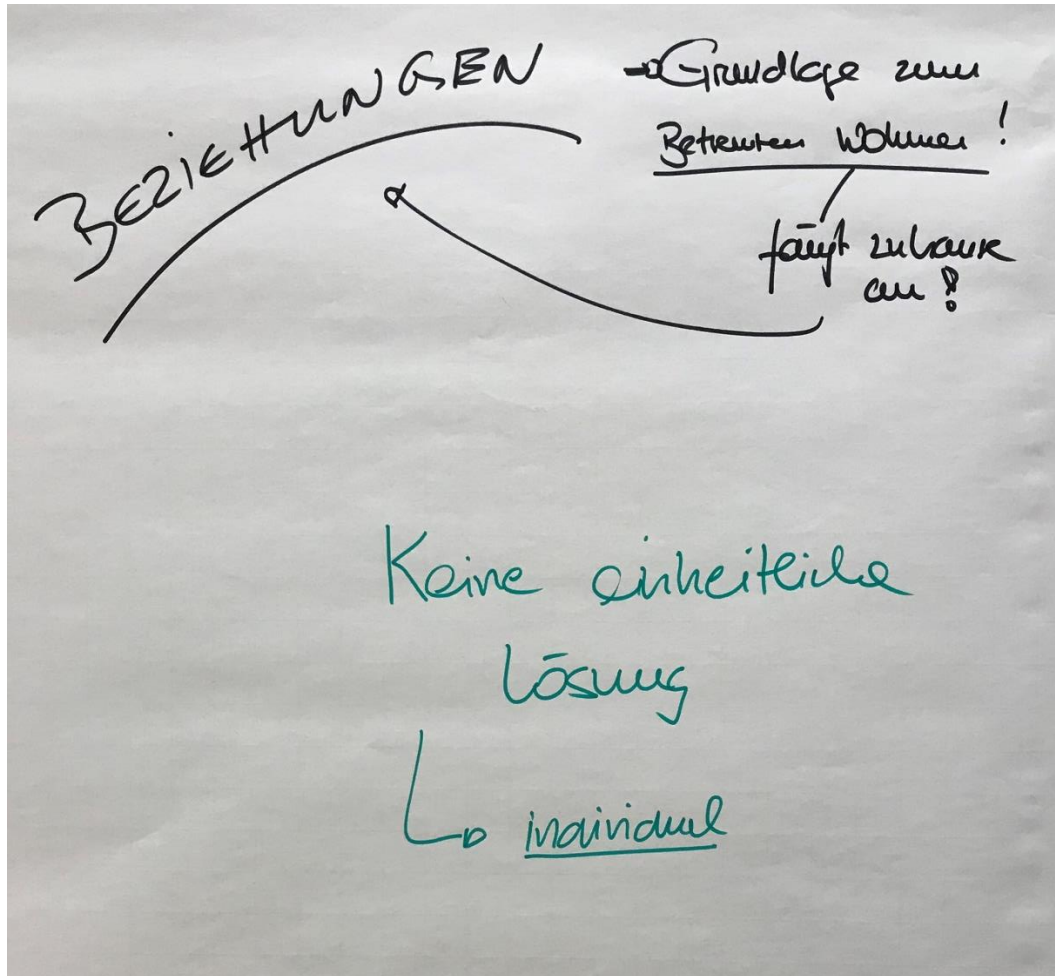 BEZIEHUNGEN
→ Grundlage zum
Betreuten Wohnen!
fängt zuhause
an!
Keine einheitliche
Lösung
↳ individuel